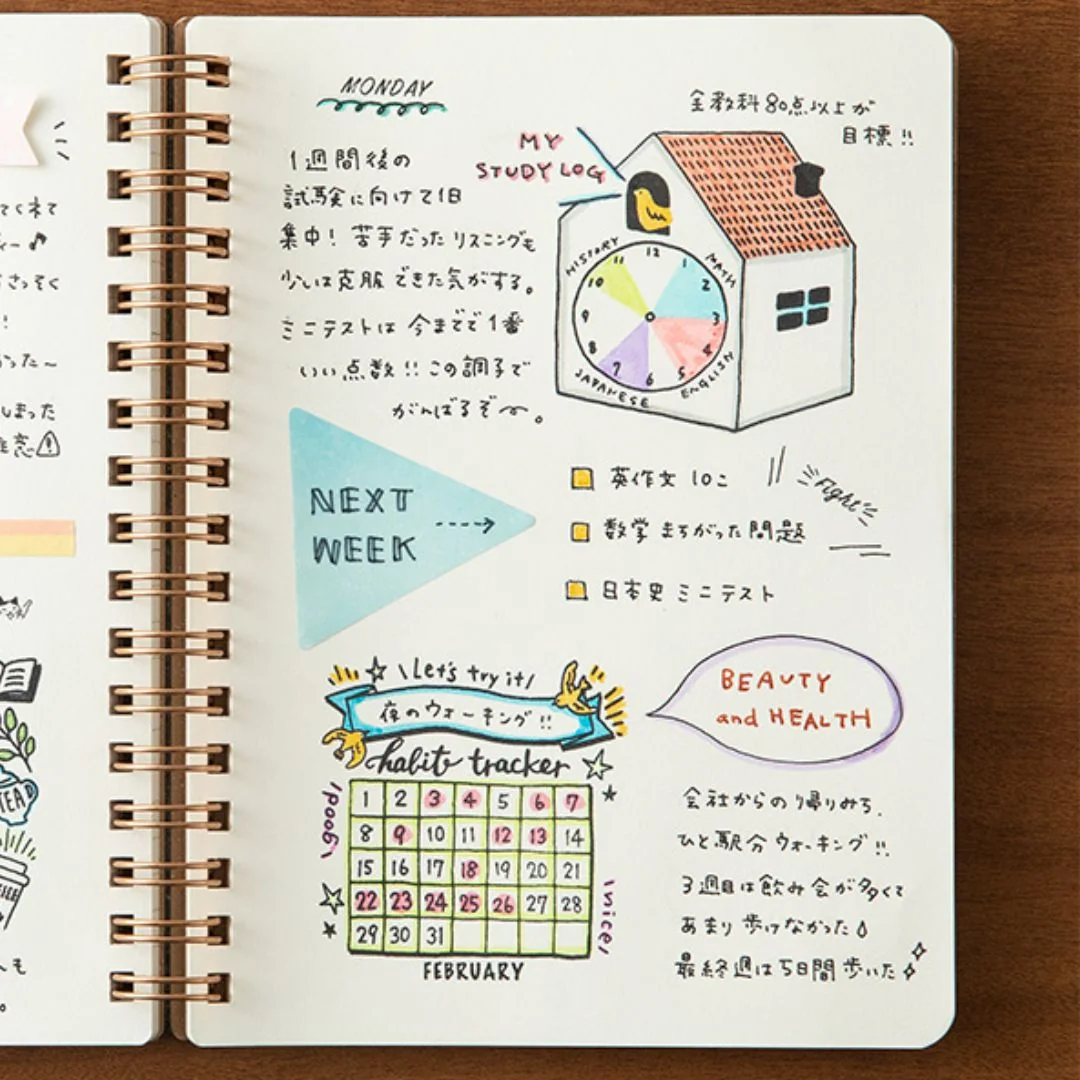 MONDAY
1週間後の
試験に向けて1日
集中! 苦手だったリスニングも
少しは克服できた気がする。
ミニテストは今までで1番
いい点数!!この調子で
がんばるぞ〜。
全教科80点以上が
目標!!
MY
STUDY LOG
HISTORY
MATH
ENGLISH
JAPANESE
12
1
2
3
4
5
6
7
8
9
10
11
NEXT
WEEK
英作文 10こ
数学 まちがった問題
日本史 ミニテスト
Fight
Let's try it
夜のウォーキング!!
habit tracker
good
1 2 3 4 5 6 7
8 9 10 11 12 13 14
15 16 17 18 19 20 21
22 23 24 25 26 27 28
29 30 31
nice
FEBRUARY
BEAUTY
and HEALTH
会社からの帰りみち、
ひと駅分ウォーキング!!
3週目は飲み会が多くて
あまり歩けなかった
最終週は5日間歩いた
てくれて
ィー♪
さっそく
!
った〜
しまった
注意
TEA
も
。